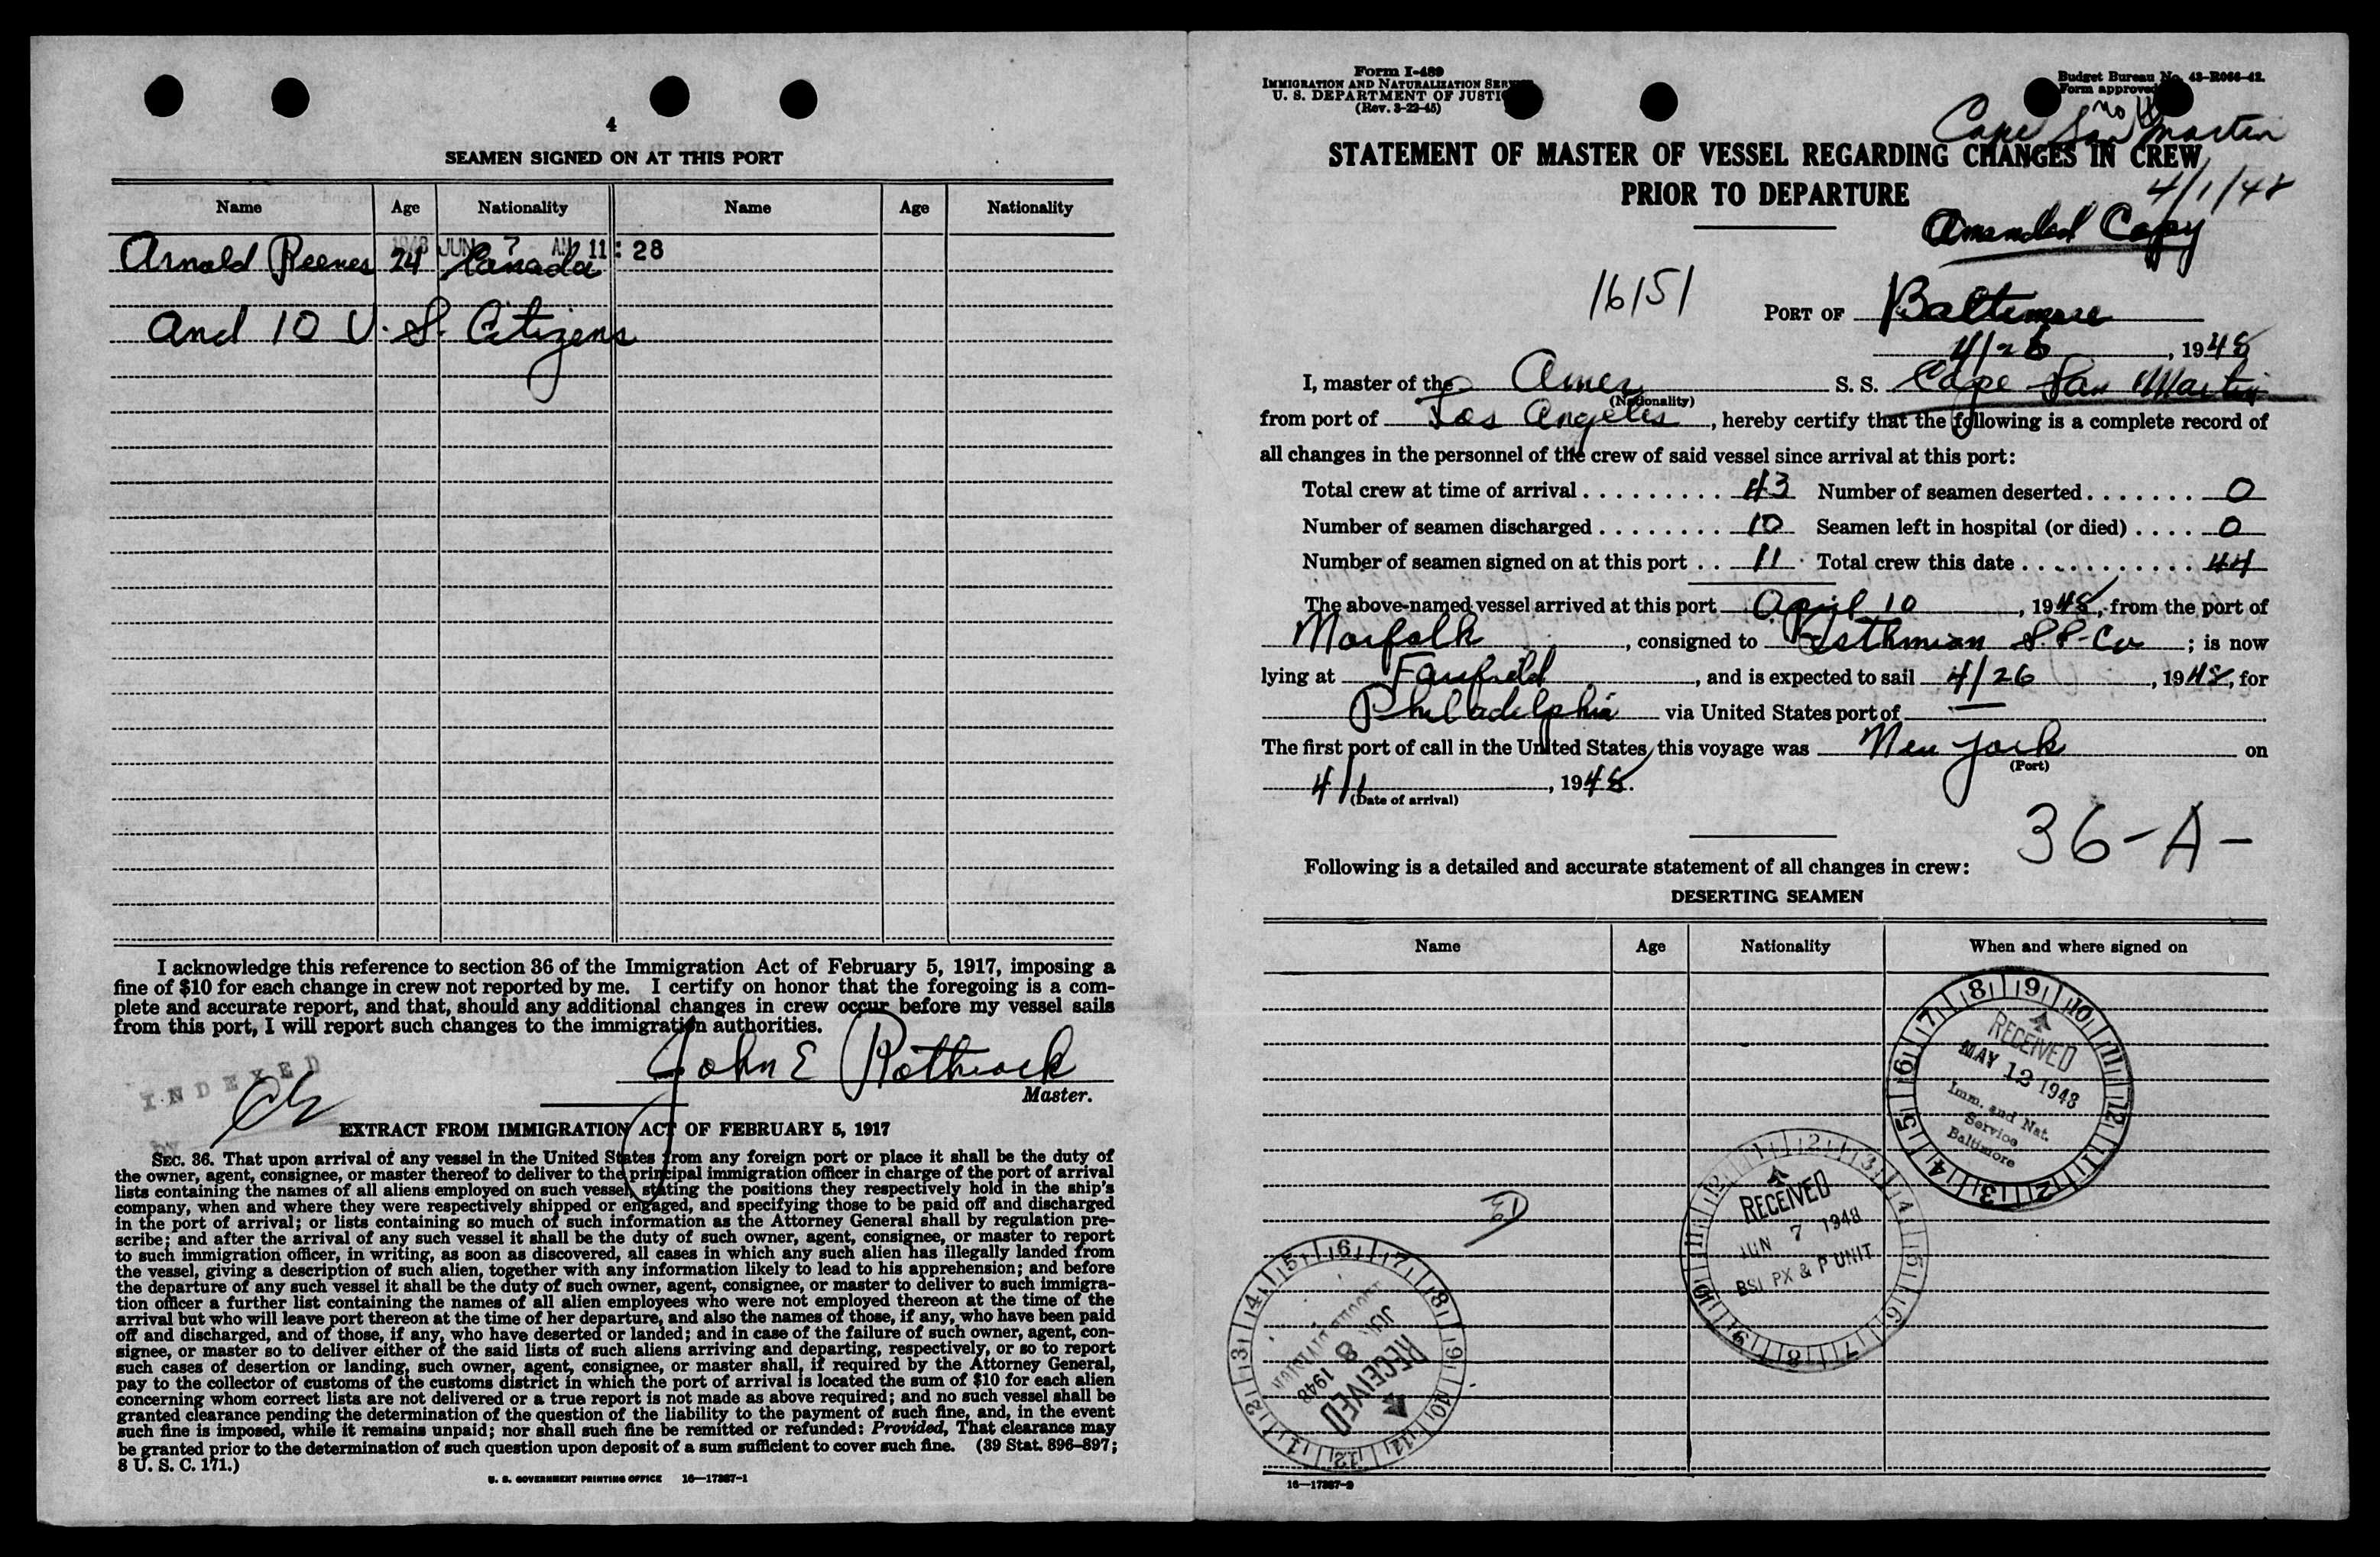 4
SEAMEN SIGNED ON AT THIS PORT
Name Age Nationality Name Age Nationality
1948 JUN 7 AM 11:28
Arnold Reeves 24 Canada
and 10 U.S. Citizens
I acknowledge this reference to section 36 of the Immigration Act of February 5, 1917, imposing a
fine of $10 for each change in crew not reported by me. I certify on honor that the foregoing is a com-
plete and accurate report, and that, should any additional changes in crew occur before my vessel sails
from this port, I will report such changes to the immigration authorities.
John E Rothrock
Master.
INDEXED
EXTRACT FROM IMMIGRATION ACT OF FEBRUARY 5, 1917
SEC. 36. That upon arrival of any vessel in the United States from any foreign port or place it shall be the duty of
the owner, agent, consignee, or master thereof to deliver to the principal immigration officer in charge of the port of arrival
lists containing the names of all aliens employed on such vessel, stating the positions they respectively hold in the ship's
company, when and where they were respectively shipped or engaged, and specifying those to be paid off and discharged
in the port of arrival; or lists containing so much of such information as the Attorney General shall by regulation pre-
scribe; and after the arrival of any such vessel it shall be the duty of such owner, agent, consignee, or master to report
to such immigration officer, in writing, as soon as discovered, all cases in which any such alien has illegally landed from
the vessel, giving a description of such alien, together with any information likely to lead to his apprehension; and before
the departure of any such vessel it shall be the duty of such owner, agent, consignee, or master to deliver to such immigra-
tion officer a further list containing the names of all alien employees who were not employed thereon at the time of the
arrival but who will leave port thereon at the time of her departure, and also the names of those, if any, who have been paid
off and discharged, and of those, if any, who have deserted or landed; and in case of the failure of such owner, agent, con-
signee, or master so to deliver either of the said lists of such aliens arriving and departing, respectively, or so to report
such cases of desertion or landing, such owner, agent, consignee, or master shall, if required by the Attorney General,
pay to the collector of customs of the customs district in which the port of arrival is located the sum of $10 for each alien
concerning whom correct lists are not delivered or a true report is not made as above required; and no such vessel shall be
granted clearance pending the determination of the question of the liability to the payment of such fine, and, in the event
such fine is imposed, while it remains unpaid; nor shall such fine be remitted or refunded: Provided, That clearance may
be granted prior to the determination of such question upon deposit of a sum sufficient to cover such fine. (39 Stat. 896-897;
8 U. S. C. 171.)
U. S. GOVERNMENT PRINTING OFFICE 16—17387-1
Form I-489
IMMIGRATION AND NATURALIZATION SERV
U. S. DEPARTMENT OF JUSTI
(Rev. 3-22-45)
Budget Bureau No. 43-R066-42.
Form approved
Cape San Martin
STATEMENT OF MASTER OF VESSEL REGARDING CHANGES IN CREW
PRIOR TO DEPARTURE
4/1/48
Amended Copy
16151
PORT OF Baltimore
4/26, 1948
I, master of the Amer S. S. Cape San Martin
(Nationality)
from port of Los Angeles, hereby certify that the following is a complete record of
all changes in the personnel of the crew of said vessel since arrival at this port:
Total crew at time of arrival 43 Number of seamen deserted 0
Number of seamen discharged 10 Seamen left in hospital (or died) 0
Number of seamen signed on at this port 11 Total crew this date 44
The above-named vessel arrived at this port April 10, 1948, from the port of
Norfolk, consigned to Isthmian S.S. Co; is now
lying at Fairfield, and is expected to sail 4/26, 1948, for
Philadelphia via United States port of —
The first port of call in the United States this voyage was New York on
(Port)
4/1, 1948.
(Date of arrival)
36-A-
Following is a detailed and accurate statement of all changes in crew:
DESERTING SEAMEN
Name Age Nationality When and where signed on
RECEIVED
MAY 12 1948
Imm. and Nat.
Service
Baltimore
RECEIVED
JUN 7 1948
BSI PX & P UNIT
RECEIVED
JUN 8 1948
16—17387-2